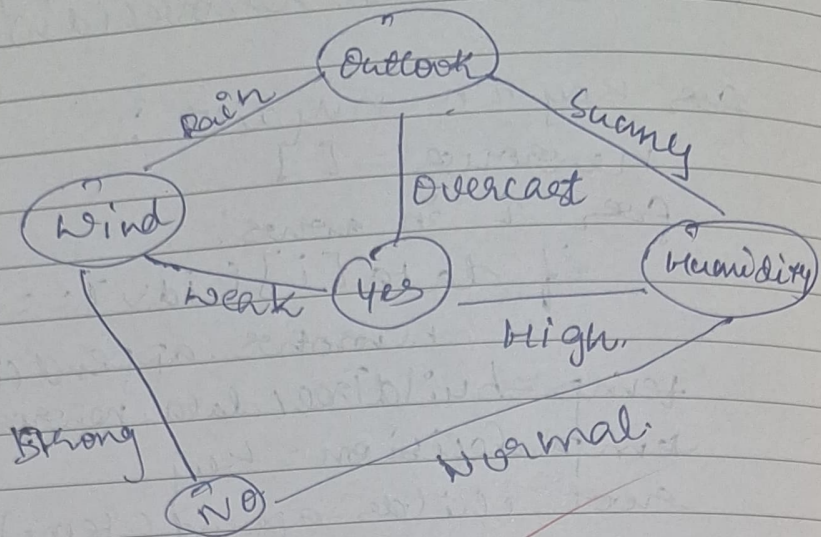 Outlook
Rain
Sunny
Overcast
Wind
Yes
Humidity
Weak
High.
Strong
Normal.
NO